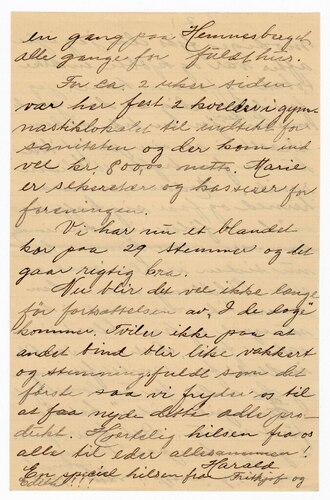 en gang paa Hemnesberget
alle gange for fuldt hus.
For ca. 2 uker siden
var her fest 2 kvelder i gym-
nastiklokalet til indtekt for
saniteten og der kom ind
vel kr. 800,00 netto. Marie
er sekretær og kasserer for
foreningen.
Vi har nu et blandet
kor paa 29 stemmer og det
gaar rigtig bra.
Nu blir det vel ikke lange
før fortsættelsen av "I de dage"
kommer. Tviler ikke paa at
andet bind blir like vakkert
og stemningsfuldt som det
første saa vi fryder os til
at faa nyde dette ædle pro-
dukt. Hertelig hilsen fra os
alle til eder allesammen!
Harald
En speciel hilsen fra Fridtjof og
Edith!!!